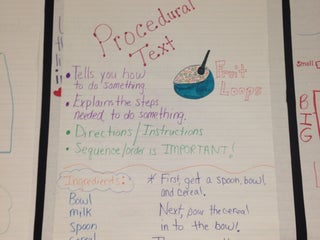 Procedural
Text
• Tells you how
to do something.
• Explains the steps
needed to do something.
• Directions / Instructions
• Sequence/order is IMPORTANT!
Fruit
Loops
Ingredients:
Bowl
milk
spoon
cereal
* First, get a spoon, bowl,
and cereal.
Next, pour the cereal
in to the bowl.
BIG